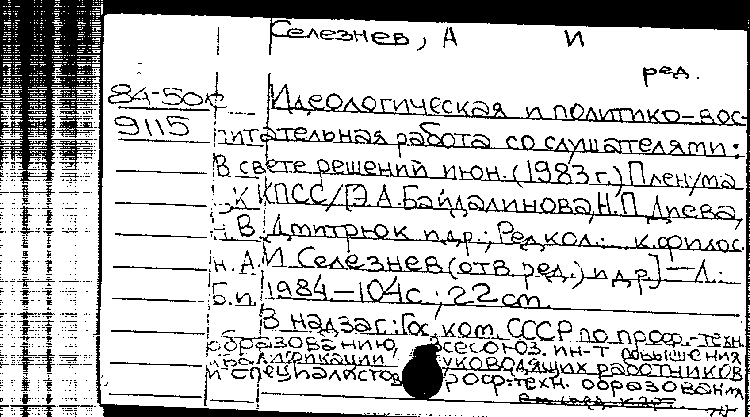 Селезнев, А И
ред.
84-50к Идеологическая и политико-вос-
9115 питательная работа со слушателями:
В свете решений июн. (1983 г.) Пленума
ЦК КПСС/[Э.А.Байдалинова, Н.П.Диева,
Н.В. Дмитрюк и др.; Редкол.: к.филос.
н. А.И.Селезнев (отв. ред.) и др.] — Л.:
Б.и., 1984.—104с.; 22 cm.
В надзаг.: Гос. ком. СССР по проф.-техн.
образованию, Всесоюз. ин-т повышения
квалификации руководящих работников
и специалистов проф.-техн. образования